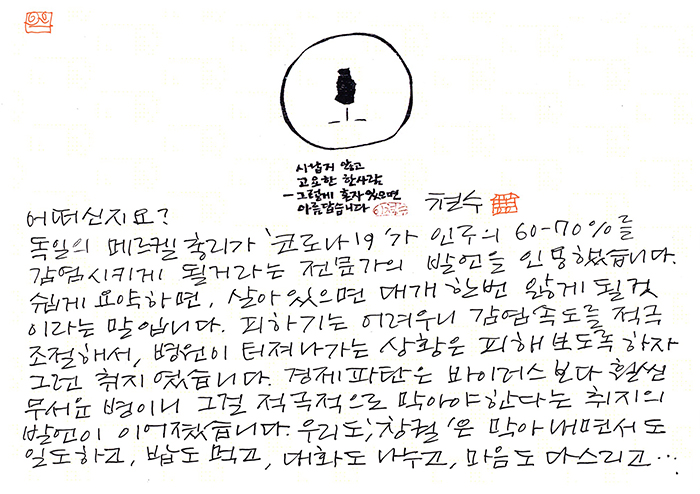 시끄럽지 않고
고요한 한사람
— 그렇게 혼자 있으면
아름답습니다
철수
어떠신지요?
독일의 메르켈 총리가 '코로나19'가 인구의 60-70%를
감염시키게 될거라는 전문가의 발언을 인용했습니다.
쉽게 요약하면, 살아 있으면 대개 한번 앓게 될 것
이라는 말입니다. 피하기는 어려우니 감염속도를 적극
조절해서, 병원이 터져나가는 상황은 피해보도록 하자
그런 취지였습니다. 경제파탄은 바이러스보다 훨씬
무서운 병이니 그걸 적극적으로 막아야한다는 취지의
발언이 이어졌습니다. 우리도, '창궐'은 막아내면서도
일도하고, 밥도 먹고, 대화도 나누고, 마음도 다스리고…